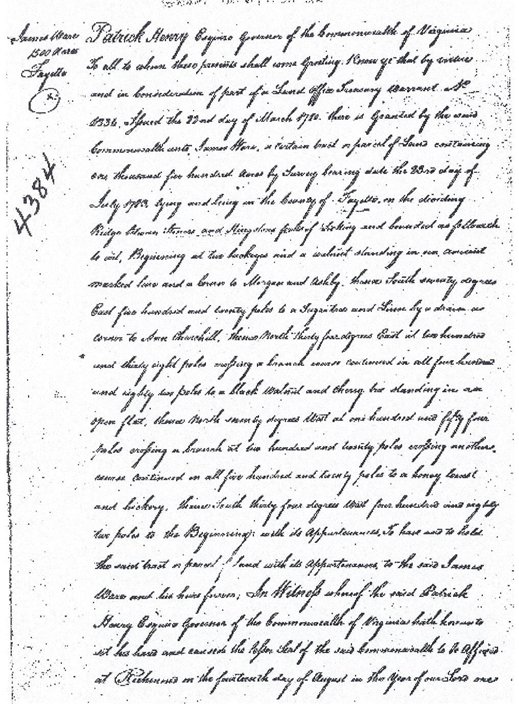 James Ware
1500 Acres
Fayette
4384
Patrick Henry Esquire Governor of the Commonwealth of Virginia
To all to whom these presents shall come Greeting. Know ye that by virtue
and in Consideration of part of a Land Office Treasury Warrant No
8336. Issued the 22nd day of March 1780. there is Granted by the said
Commonwealth unto James Ware, a certain tract or parcel of Land containing
one thousand five hundred Acres by Survey bearing date the 23rd day of
July 1783 lying and being in the County of Fayette, on the dividing
Ridge between and forks of Licking and bounded as followeth
to wit, Beginning at two buckeyes and a walnut standing in an ancient
marked line and a corner to Morgan and Ashby. thence South seventy degrees
East five hundred and twenty poles to a Sugartree and Linn by a drain as
corner to Ann Churchill, thence North thirty four degrees East at two hundred
and thirty eight poles crossing a branch course continued in all four hundred
and eighty two poles to a black Walnut and Cherry tree standing in an
open flat, thence North seventy degrees West at one hundred and fifty four
poles crossing a branch at two hundred and twenty poles crossing another.
course continued in all five hundred and twenty poles to a honey locust
and hickory. thence South thirty four degrees West four hundred and eighty
two poles to the Beginning: with its Appurtenances, To have and to hold
the said tract or parcel of land with its Appurtenances, to the said James
Ware and his heirs forever; In Witness whereof the said Patrick
Henry Esquire Governor of the Commonwealth of Virginia hath hereunto
set his hand and caused the lesser Seal of the said Commonwealth to be Affixed
at Richmond on the fourteenth day of August in the Year of our Lord one